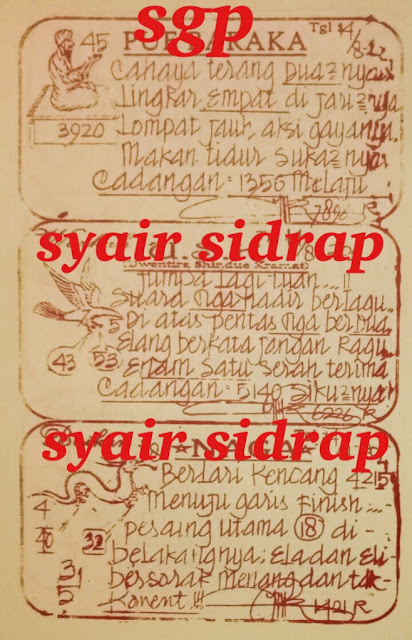 sgp
Tgl 14/
8-22
45
3920
Cahaya terang Dua2nya
Lingkar Empat di jari2nya
Lompat jauh, aksi gayanya.
Makan tidur suka2nya
Cadangan: 1356 Melaju
7896 R
syair sidrap
Jumpa lagi tuan....!!
Suara nga hadir berlagu.
Di atas pentas nga berdua.
Elang berkata jangan Ragu.
Enam Satu Serah terima
Cadangan: 5140 Siku2nya
5
43
53
6226 R
syair sidrap
NAGA
Berlari Kencang 4215
Menuju garis Finish...
pesaing utama 18 di-
belakangnya; Ela dan Eli
bersorak Menang dan tak
Konent.!!!
4
40
32
3
1
5
1401 R